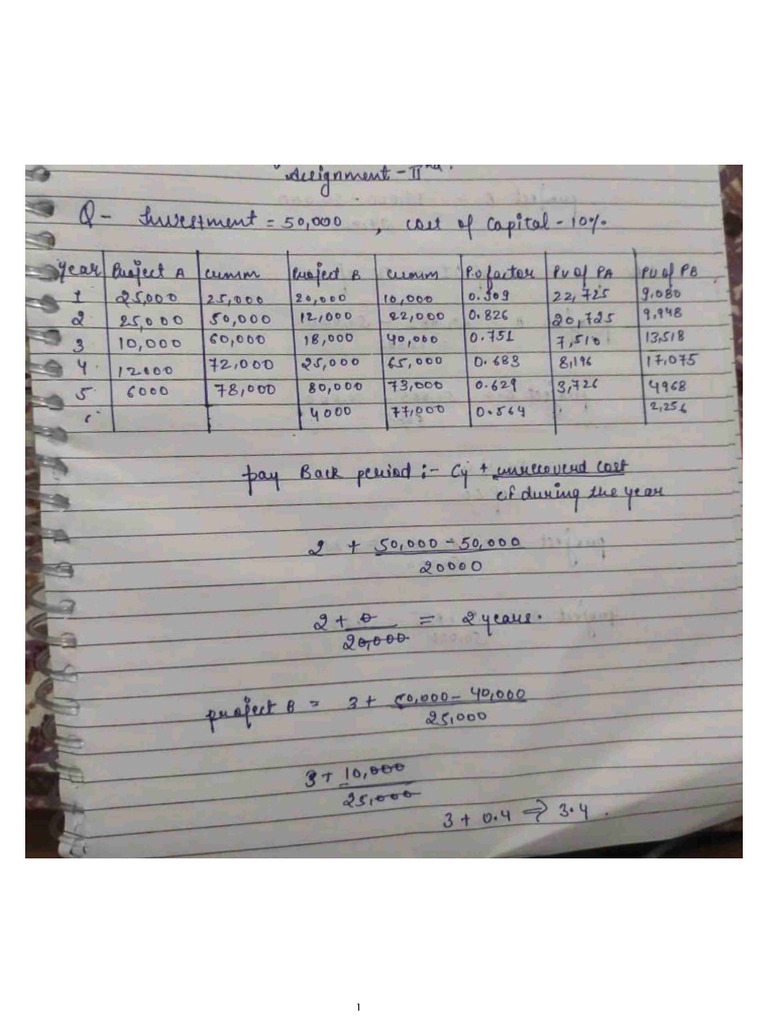 Assignment - II nd.
Q- Investment = 50,000 , cost of capital - 10%.
year Project A cumm Project B cumm P.v factor PV of PA PV of PB
1 25,000 25,000 20,000 10,000 0.909 22,725 9,080
2 25,000 50,000 12,000 22,000 0.826 20,725 9,948
3 10,000 60,000 18,000 40,000 0.751 7,510 13,518
4 12000 72,000 25,000 65,000 0.683 8,196 17,075
5 6000 78,000 80,000 73,000 0.629 3,726 4968
4000 77,000 0.564 2,256
pay Back period :- Cy + unrecovered cost
c.f during the year
2 + 50,000 - 50,000
20000
2 + 0 = 2 years.
20,000
project B = 3 + 50,000 - 40,000
25,000
3 + 10,000
25,000
3 + 0.4 ⇒ 3.4 .
1